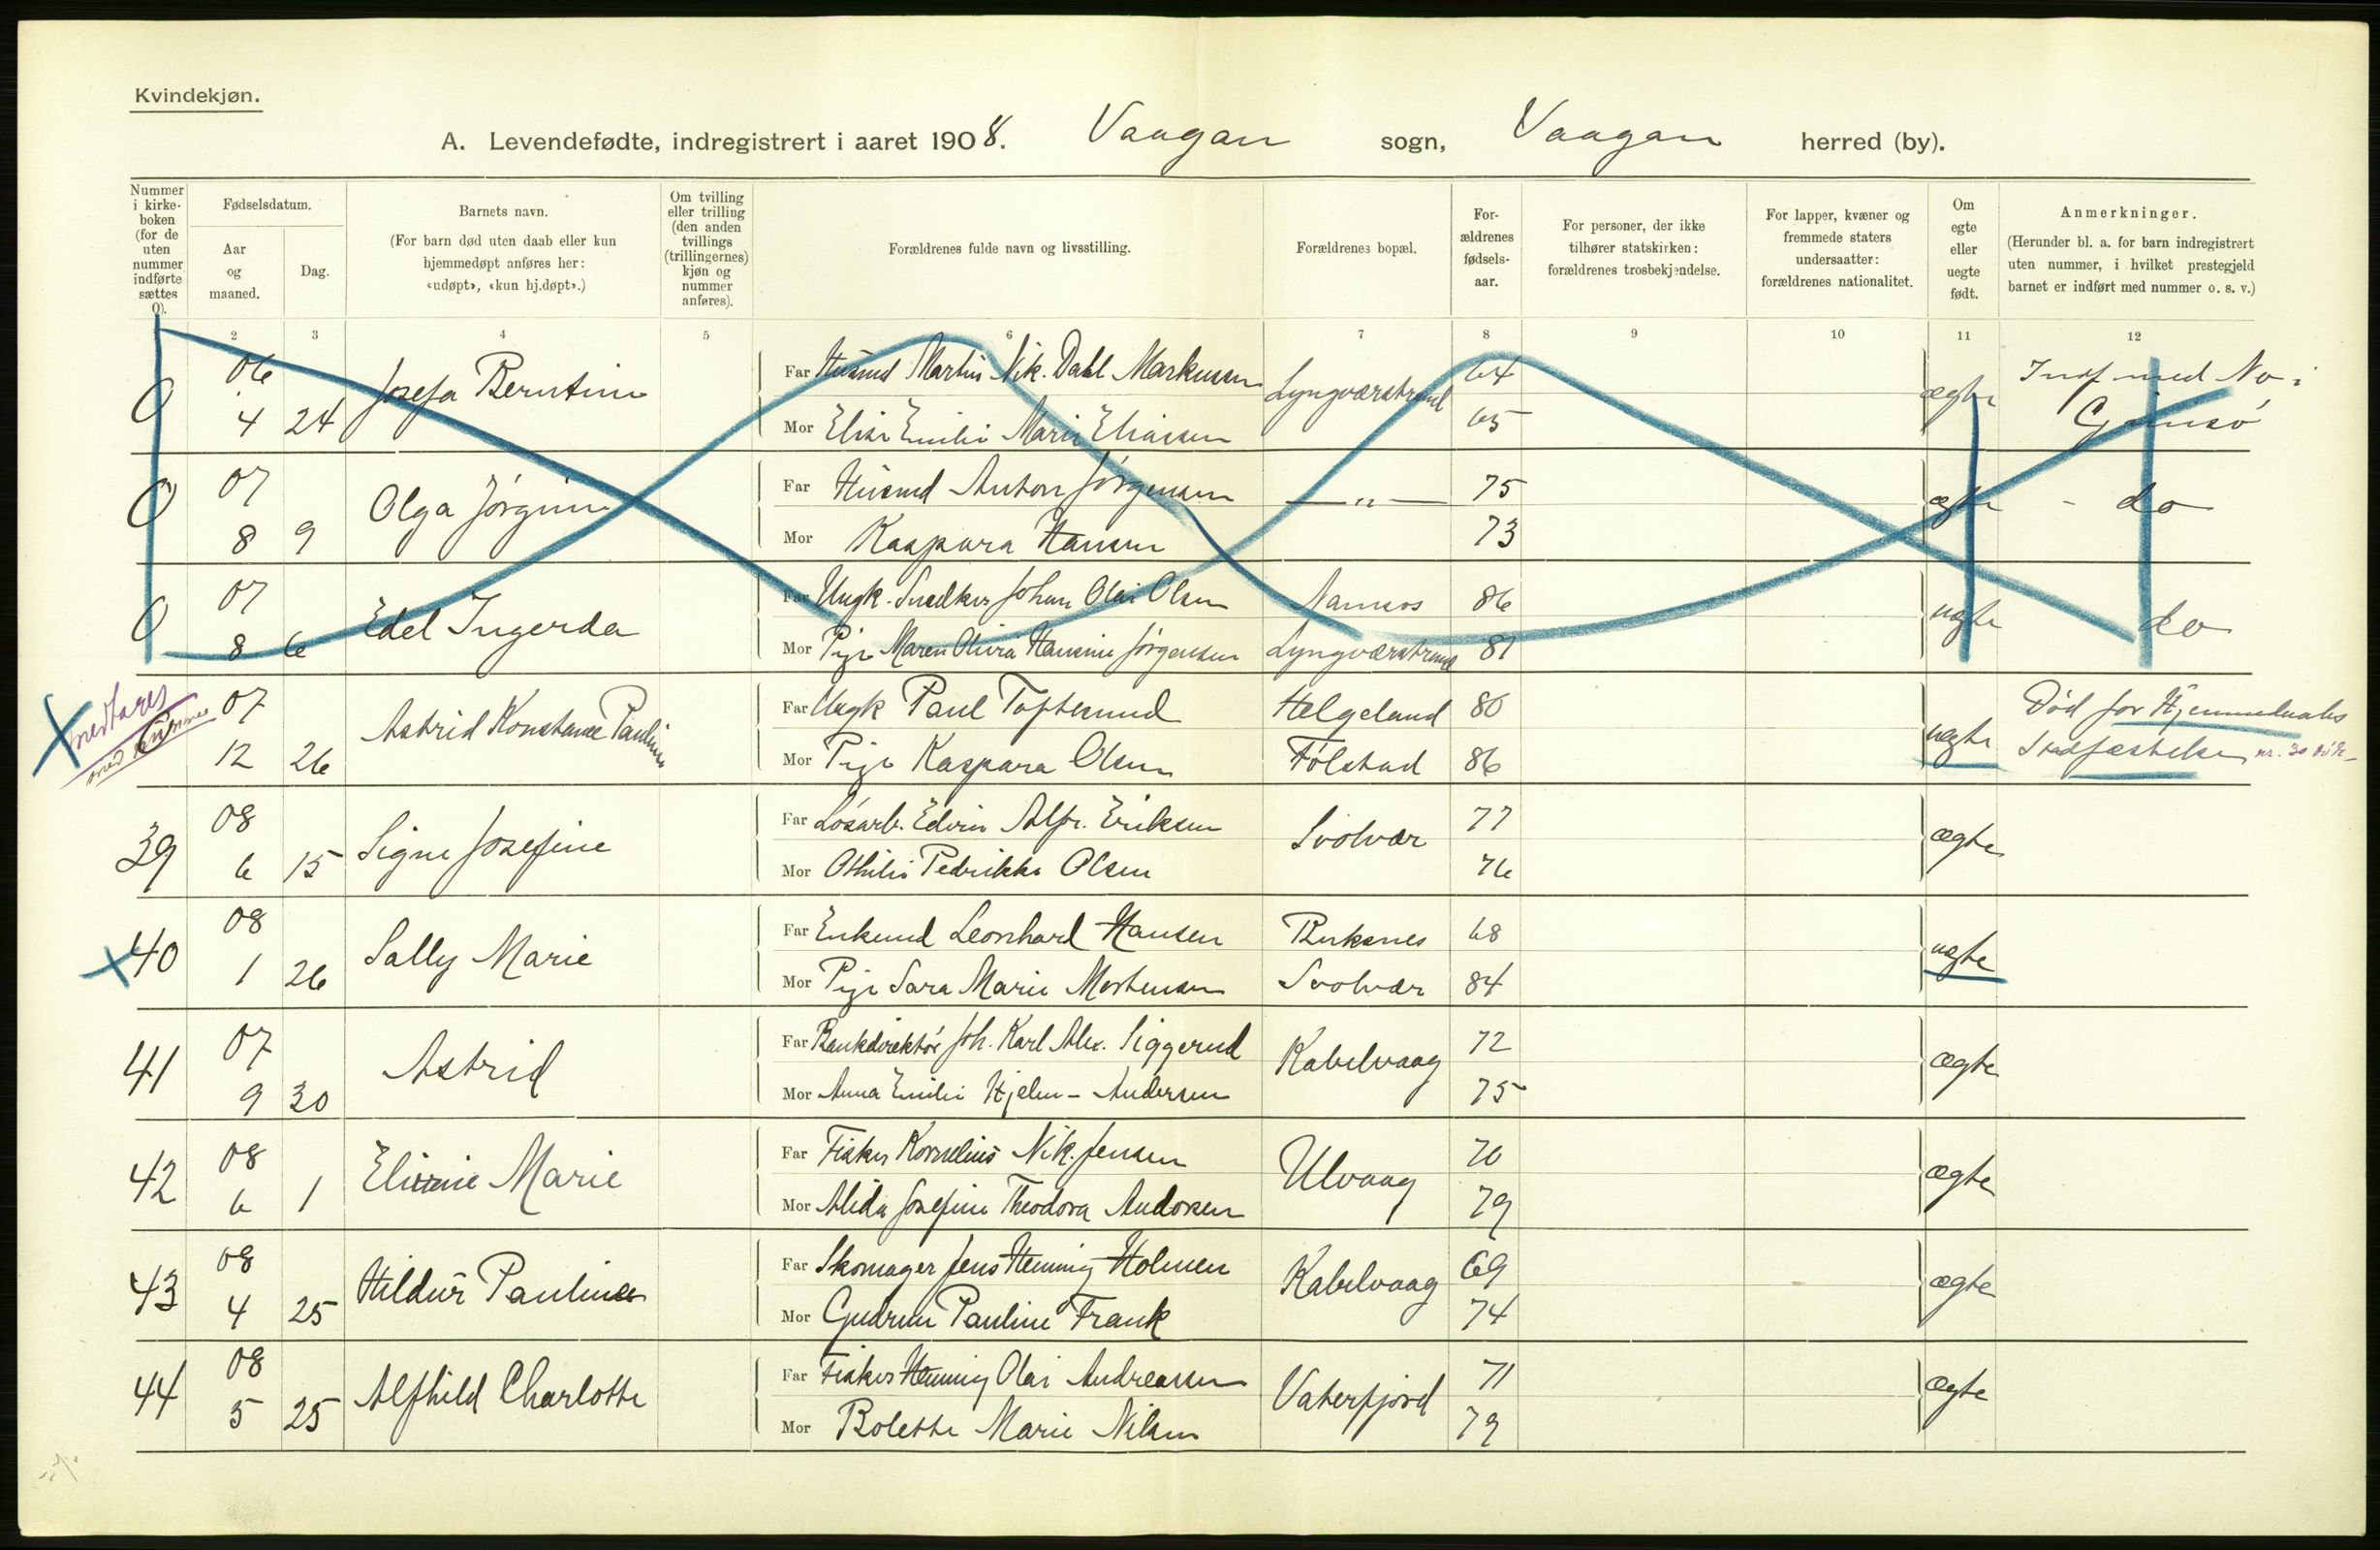 Kvindekjøn.
A. Levendefødte, indregistrert i aaret 1908. Vaagan sogn, Vaagan herred (by).
Nummer i kirke-boken (for de uten nummer indførte sættes 0).
Fødselsdatum.
Aar og maaned.
Dag.
Barnets navn.
(For barn død uten daab eller kun hjemmedøpt anføres her: «udøpt», «kun hj.døpt».)
Om tvilling eller trilling (den anden tvillings (trillingernes) kjøn og nummer anføres).
Forældrenes fulde navn og livsstilling.
Forældrenes bopæl.
For-ældrenes fødsels-aar.
For personer, der ikke tilhører statskirken: forældrenes trosbekjendelse.
For lapper, kvæner og fremmede staters undersaatter: forældrenes nationalitet.
Om egte eller uegte født.
Anmerkninger.
(Herunder bl. a. for barn indregistrert uten nummer, i hvilket prestegjeld barnet er indført med nummer o. s. v.)
2 3 4 5 6 7 8 9 10 11 12
0 06 4 24 Josefa Berntine
Far Husmd Martin Nik. Dahl Markussen Lyngværstrand 64 ægte Indf med No i
Mor Elise Emilie Marie Eliassen 65 Gimsø
0 07 8 9 Olga Jørgine
Far Husmd Anton Jørgensen — „ — 75 ægte - do
Mor Kaspara Hansen 73
0 07 8 6 Edel Ingerda
Far Ungk. Snedker Johan Olai Olsen Namsos 86 uægte do
Mor Pige Maren Olivia Hansine Jørgensen Lyngværstrand 81
medtages
med nummer
07 12 26 Astrid Konstance Pauline
Far Ungk Paul Toftesund Helgeland 80 uægte Død før Hjemmedaabs
Mor Pige Kaspara Olsen Følstad 86 Stadfæstelse nr. 30 døde
39 08 6 15 Signe Josefine
Far Løsarb. Edvin Alfr. Eriksen Svolvær 77 ægte
Mor Othilie Pedrikke Olsen 76
40 08 1 26 Sally Marie
Far Enkemd Leonhard Hansen Buksnes 68 uægte
Mor Pige Sara Marie Mortensen Svolvær 84
41 07 9 30 Astrid
Far Bankdirektør Joh. Karl Alex. Siggerud Kabelvaag 72 ægte
Mor Anna Emilie Hjelm - Andersen 75
42 08 6 1 Elinie Marie
Far Fisker Kornelius Nik. Jensen Ulvaag 70 ægte
Mor Alida Josefine Theodora Andorsen 79
43 08 4 25 Hildur Pauline
Far Skomager Jens Henning Holmen Kabelvaag 69 ægte
Mor Gudrun Pauline Frank 74
44 08 5 25 Alfhild Charlotte
Far Fisker Henning Olai Andreassen Vaterfjord 71 ægte
Mor Bolette Marie Nilsen 79